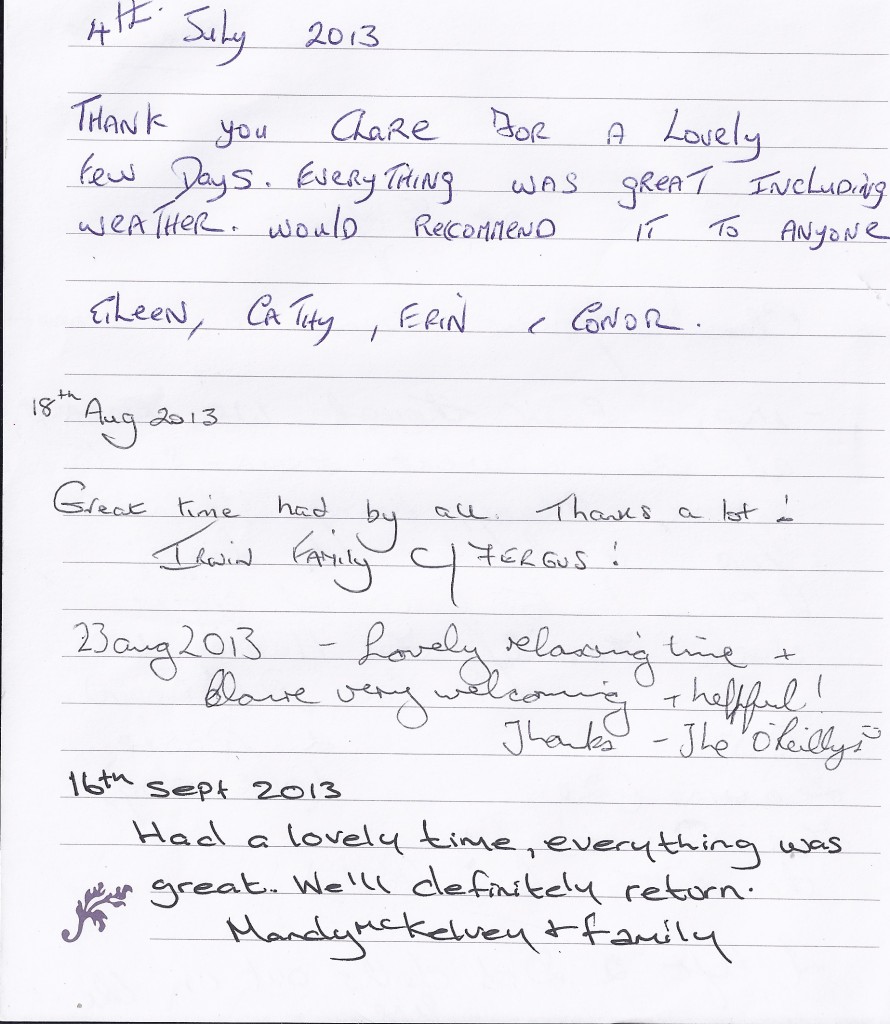 4th July 2013
THANK you CLARE FOR A Lovely
few Days. EVERYTHING WAS gREAT INCLUDING
WEATHER. WOULD RECOMMEND IT TO ANYONE
EILEEN, CATHY, ERIN & CONOR.
18th Aug 2013
Great time had by all. Thanks a lot!
IRWIN FAMILY C/ FERGUS!
23 aug 2013 - Lovely relaxing time +
Clare very welcoming + helpful!
Thanks - The O'Reillys
16th Sept 2013
Had a lovely time, everything was
great. We'll definitely return.
Mandy McKelvey & family